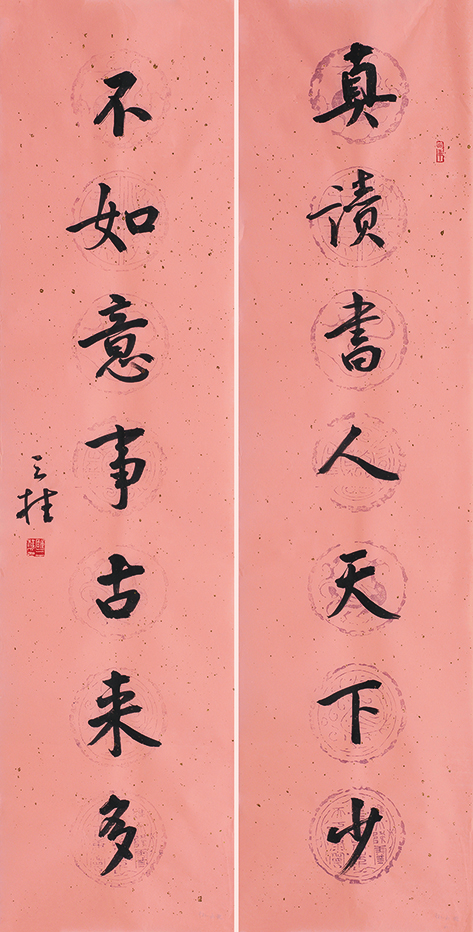 真讀書人天下少
不如意事古来多